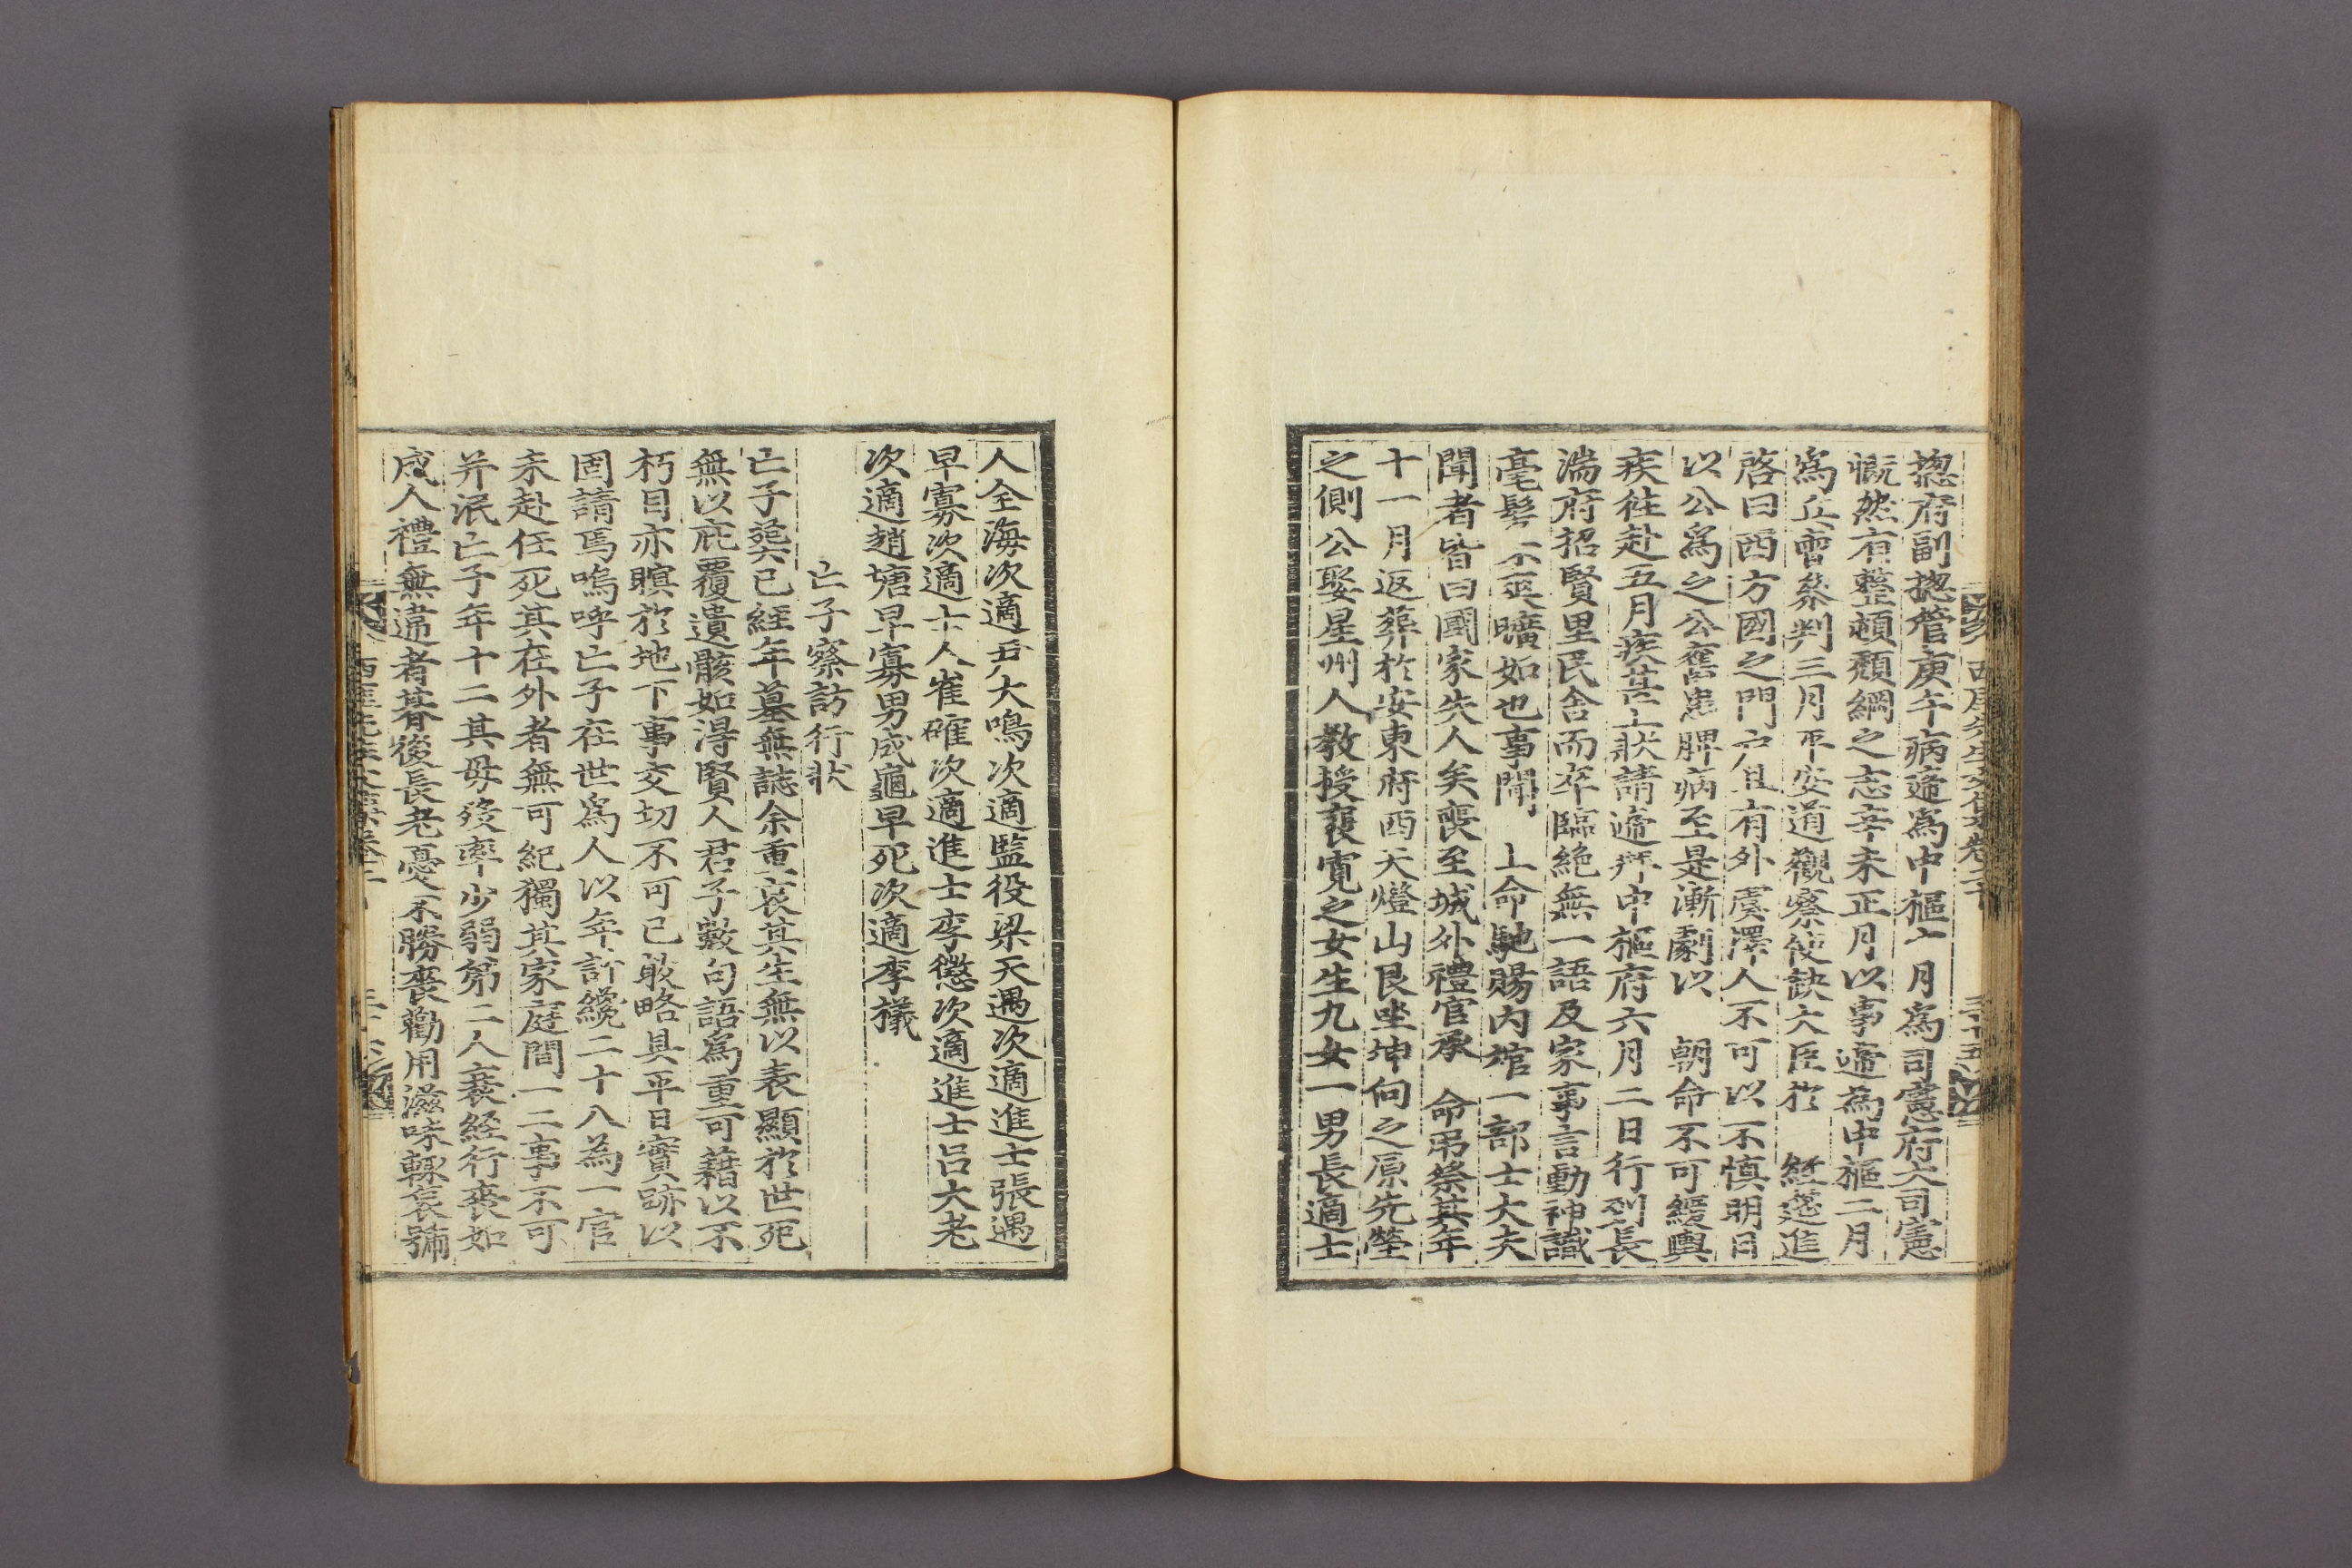 摠府副摠管庚午病遞爲中樞六月爲司憲府大司憲
慨然有整頓頹綱之志辛未正月以事遞爲中樞二月
爲兵曹參判三月平安道觀察使缺大臣於 經筵進
啓曰西方國之門戶且有外虞澤人不可以不愼明日
以公爲之公舊患脾病至是漸劇以 朝命不可緩輿
疾往赴五月疾甚上狀請遞拜中樞府六月二日行到長
湍府招賢里民舍而卒臨絶無一語及家事言動神識
毫髮不爽曠如也事聞 上命馳賜內棺一部士大夫
聞者皆曰國家失人矣喪至城外禮官承 命弔祭其年
十一月返葬於安東府西天燈山艮坐坤向之原先塋
之側公娶星州人教授裵寬之女生九女一男長適士
人全海次適 大鳴次適監役梁天遇次適進士張遇
早寡次適士人崔確次適進士李懲次適進士呂大老
次適趙塘早寡男成龜早死次適李㰕
亡子察訪行狀
亡子 已經年墓無誌余重哀其生無以表顯於世死
無以庇覆遺骸如得賢人君子數句語爲重可藉以不
朽目亦瞑於地下事交切不可已敢略具平日實跡以
固請焉嗚呼亡子在世爲人以年計纔二十八爲一官
未赴任死其在外者無可紀獨其家庭間一二事不可
并泯亡子年十二其母歿率少弱弟二人衰絰行喪如
成人禮無違者朞後長老憂不勝喪勸用滋味輒哀號